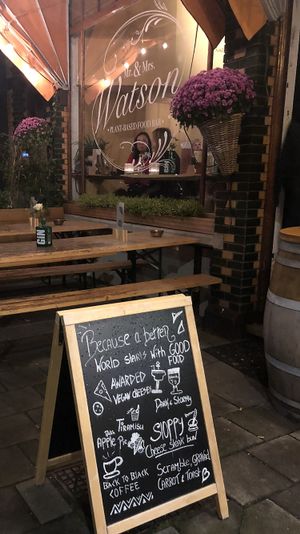 Mr. & Mrs.
Watson
• PLANT-BASED FOOD BAR •
GIN
Because a better
WORLD STARTS WITH GOOD
FOOD
AWARDED
VEGAN CHEESE!
DARK & STORMY
TIRAMISU
APPLE PIE
SLOPPY
CHEESE STEAK bun!
BACK TO BLACK
COFFEE
SCRAMBLE, ORANGE/
CARROT & TOAST